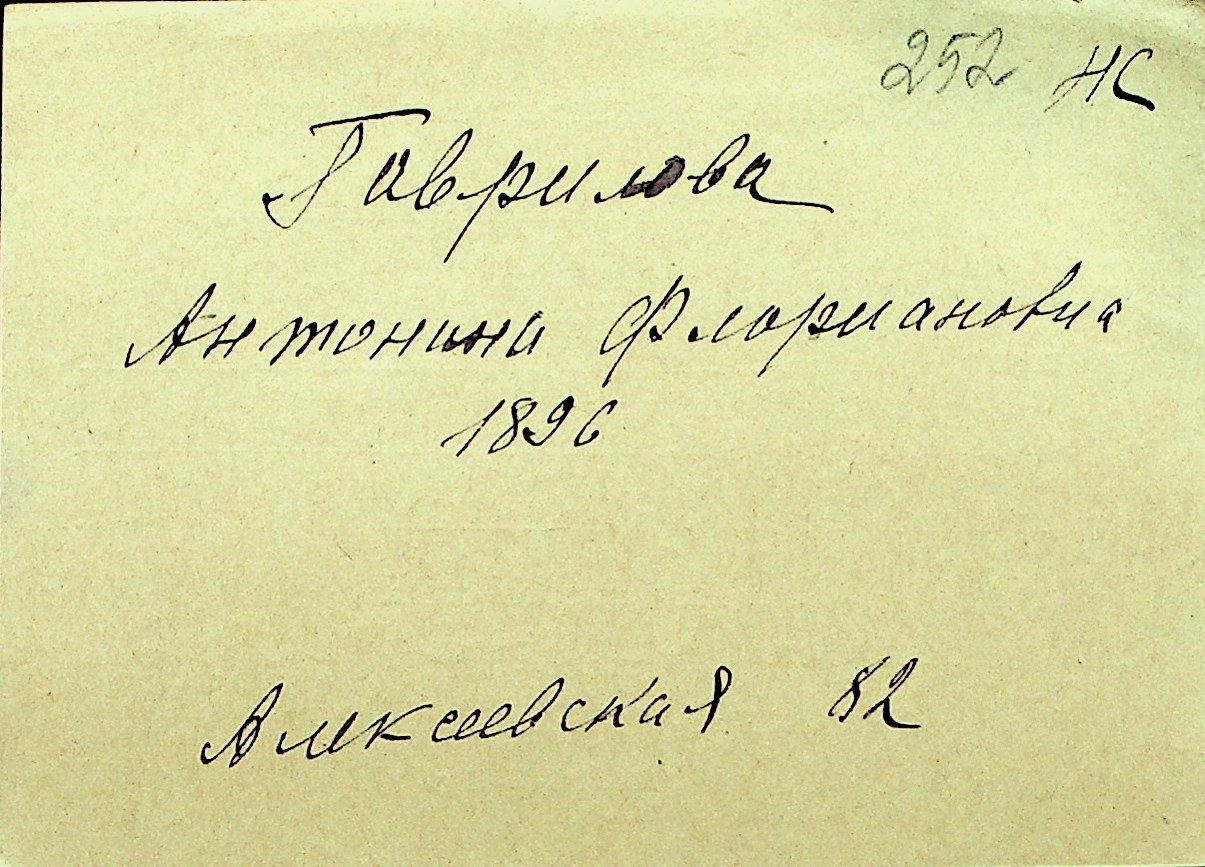 252 НС
Гаврилова
Антонина Флориановна
1896
Алексеевская 82